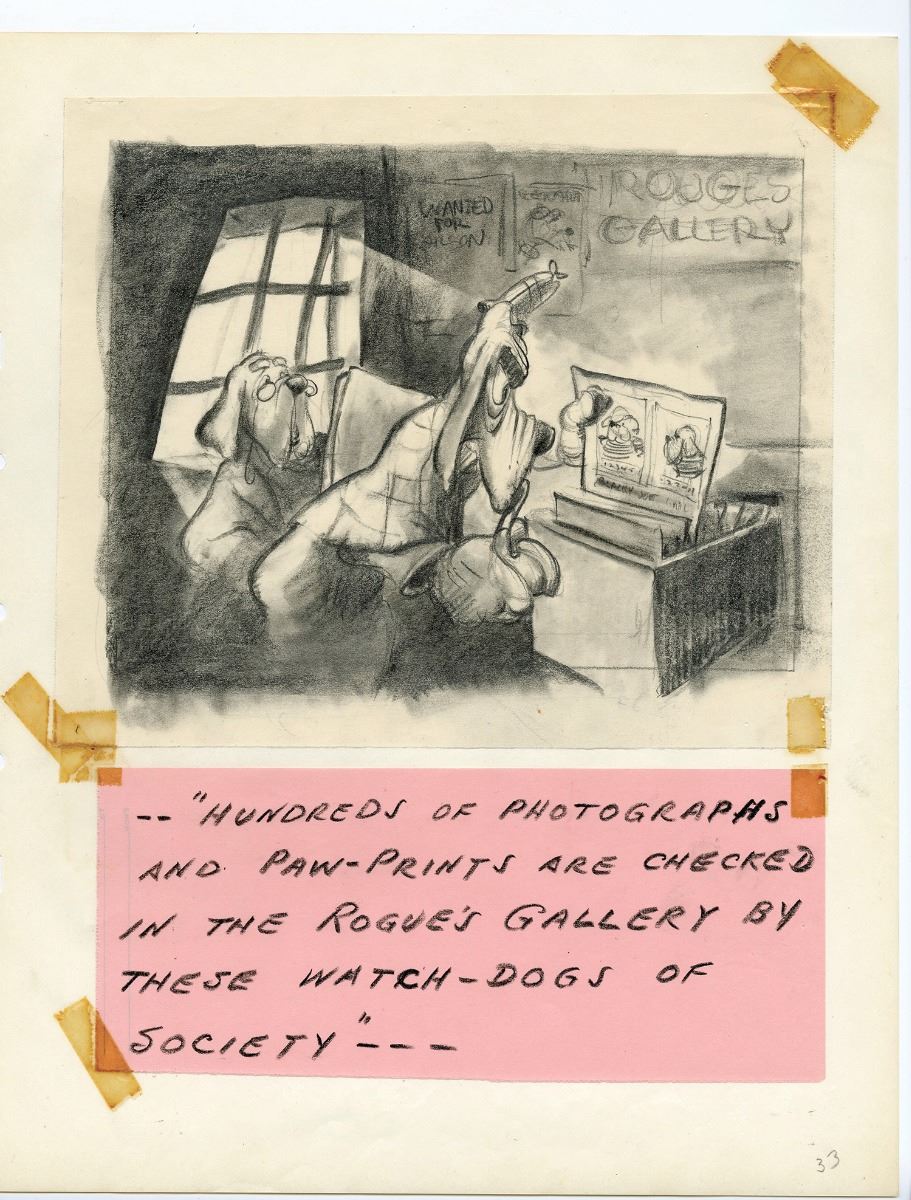 WANTED
FOR
ROUGES
GALLERY
12345
--"HUNDREDS OF PHOTOGRAPHS
AND PAW-PRINTS ARE CHECKED
IN THE ROGUE'S GALLERY BY
THESE WATCH-DOGS OF
SOCIETY"---
33